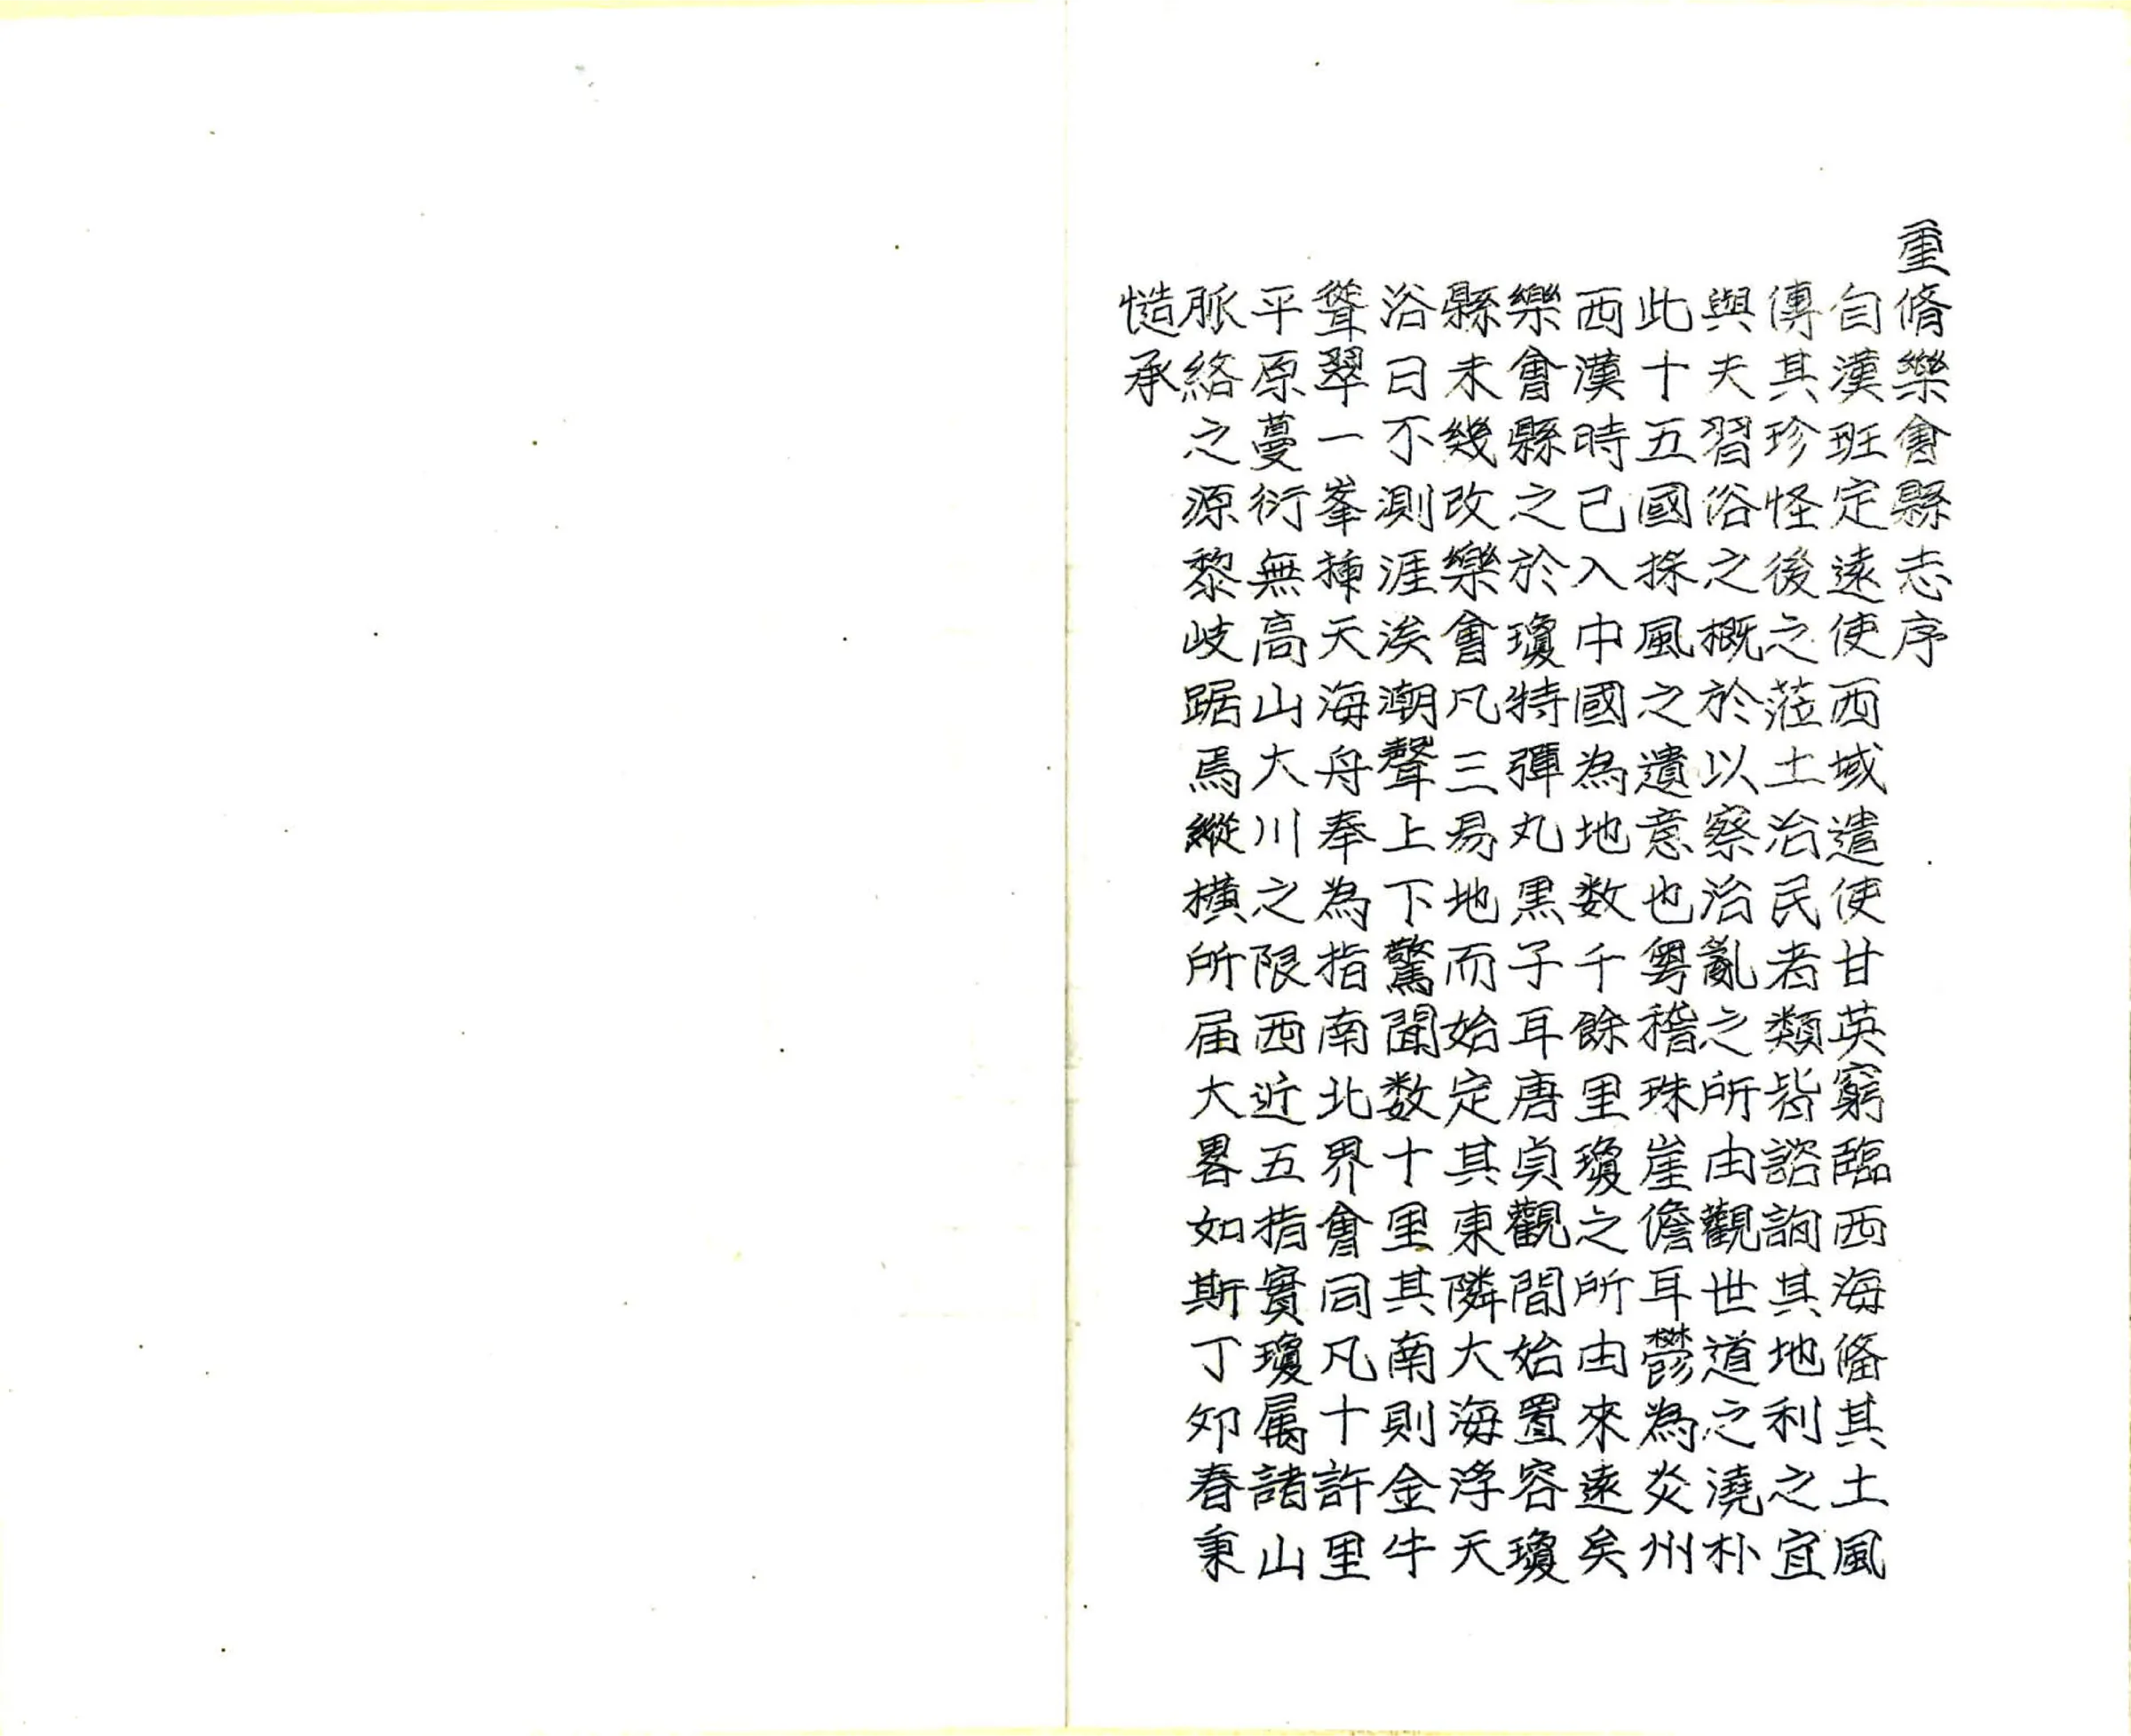 重脩樂會縣志序
自漢班定遠使西域遣使甘英窮臨西海俻其土風
傳其珍怪後之蒞土治民者類皆諮詢其地利之宜
與夫習俗之概於以察治亂之所由觀世道之澆朴
此十五國採風之遺意也粵稽珠崖儋耳鬱為炎州
西漢時已入中國為地数千餘里瓊之所由來遠矣
樂會縣之於瓊特彈丸黒子耳唐貞觀間始置容瓊
縣未幾改樂會凡三易地而始定其東隣大海浮天
浴日不測涯涘潮聲上下驚聞数十里其南則金牛
聳翠一峯揷天海舟奉為指南北界會同凡十許里
平原蔓衍無高山大川之限西近五指實瓊属諸山
脈絡之源黎岐踞焉縱横所届大畧如斯丁夘春秉
慥承